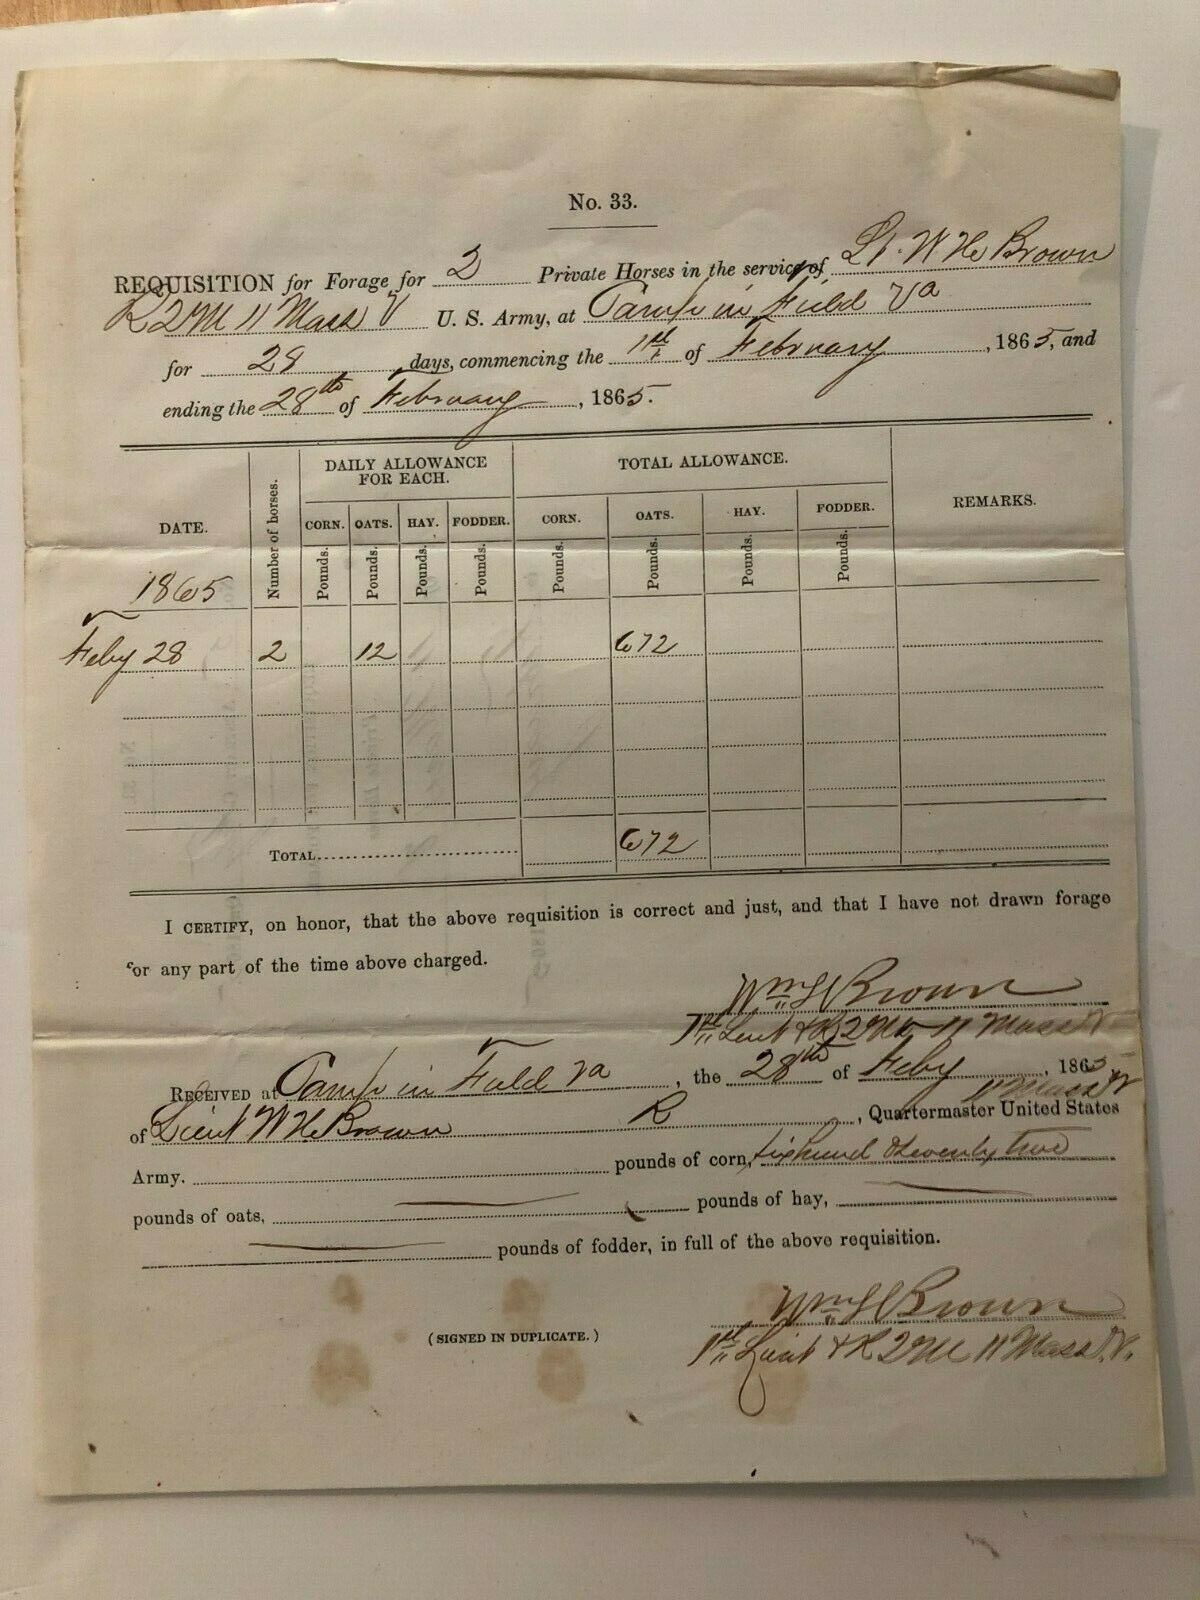 No. 33.
REQUISITION for Forage for 2 Private Horses in the service of Lt. W H Brown
R2M 11 Mass V U. S. Army, at Camp in Field Va
for 28 days, commencing the 1st of February, 1865, and
ending the 28th of February, 1865.
DATE. Number of horses. DAILY ALLOWANCE FOR EACH. TOTAL ALLOWANCE. REMARKS.
CORN. OATS. HAY. FODDER. CORN. OATS. HAY. FODDER.
Pounds. Pounds. Pounds. Pounds. Pounds. Pounds. Pounds. Pounds.
1865
Feby 28 2 12 672
TOTAL 672
I CERTIFY, on honor, that the above requisition is correct and just, and that I have not drawn forage
for any part of the time above charged.
Brown
1st Lieut & R2M 11 Mass V
RECEIVED at Camp in Field Va, the 28th of Feby, 1865
11 Mass V
of Lieut W H Brown R, Quartermaster United States
Army. pounds of corn, six hund & seventy two
pounds of oats, pounds of hay,
pounds of fodder, in full of the above requisition.
Brown
(SIGNED IN DUPLICATE.)
1st Lieut & R2M 11 Mass. V.